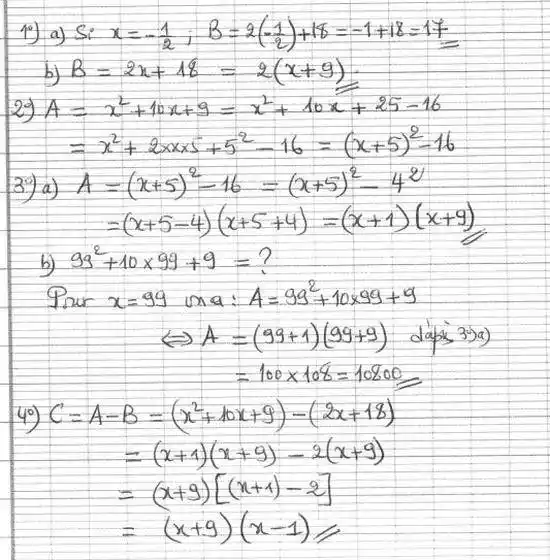 1°) a) Si x = -1/2 ; B = 2(-1/2)+18 = -1+18 = 17
b) B = 2x + 18 = 2(x+9).
2°) A = x² + 10x + 9 = x² + 10x + 25 - 16
= x² + 2×x×5 + 5² - 16 = (x+5)² - 16
3°) a) A = (x+5)² - 16 = (x+5)² - 4²
= (x+5-4)(x+5+4) = (x+1)(x+9)
b) 99² + 10×99 + 9 = ?
Pour x = 99 on a : A = 99² + 10×99 + 9
⇔ A = (99+1)(99+9) d'après 3°)a)
= 100 × 108 = 10800
4°) C = A - B = (x² + 10x + 9) - (2x + 18)
= (x+1)(x+9) - 2(x+9)
= (x+9)[(x+1) - 2]
= (x+9)(x-1)